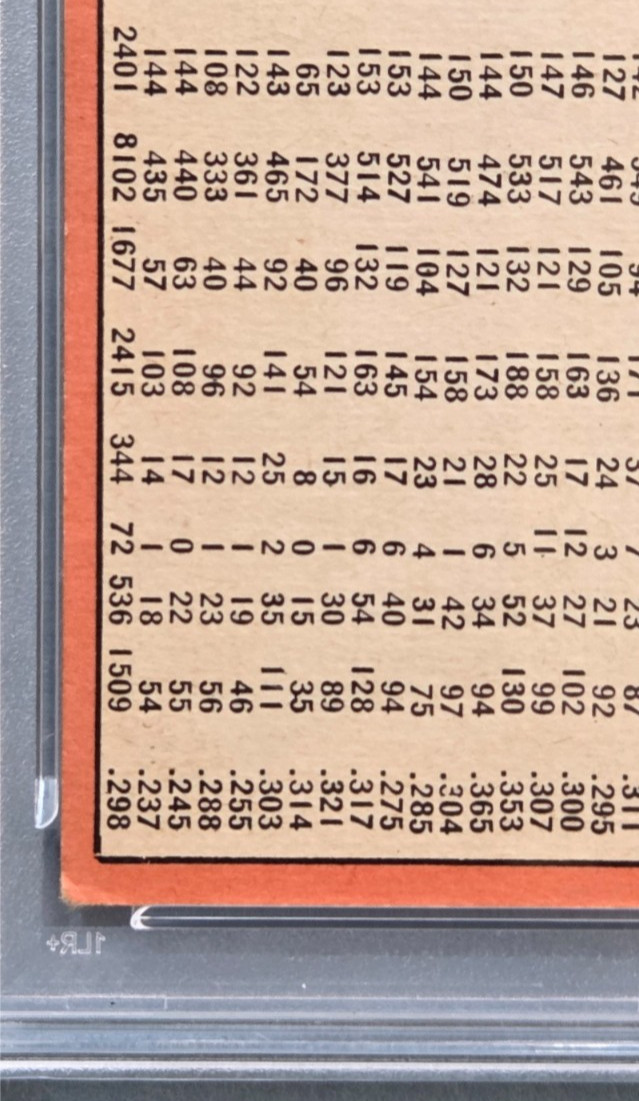 23 87 .311
127 461 105 136 24 3 21 92 .295
146 543 129 163 17 12 27 102 .300
147 517 121 158 25 11 37 99 .307
150 533 132 188 22 5 52 130 .353
144 474 121 173 28 6 34 94 .365
150 519 127 158 21 1 42 97 .304
144 541 104 154 23 4 31 75 .285
153 527 119 145 17 6 40 94 .275
153 514 132 163 16 6 54 128 .317
123 377 96 121 15 1 30 89 .321
65 172 40 54 8 0 15 35 .314
143 465 92 141 25 2 35 111 .303
122 361 44 92 12 1 19 46 .255
108 333 40 96 12 1 23 56 .288
144 440 63 108 17 0 22 55 .245
144 435 57 103 14 1 18 54 .237
2401 8102 1677 2415 344 72 536 1509 .298
1LR+